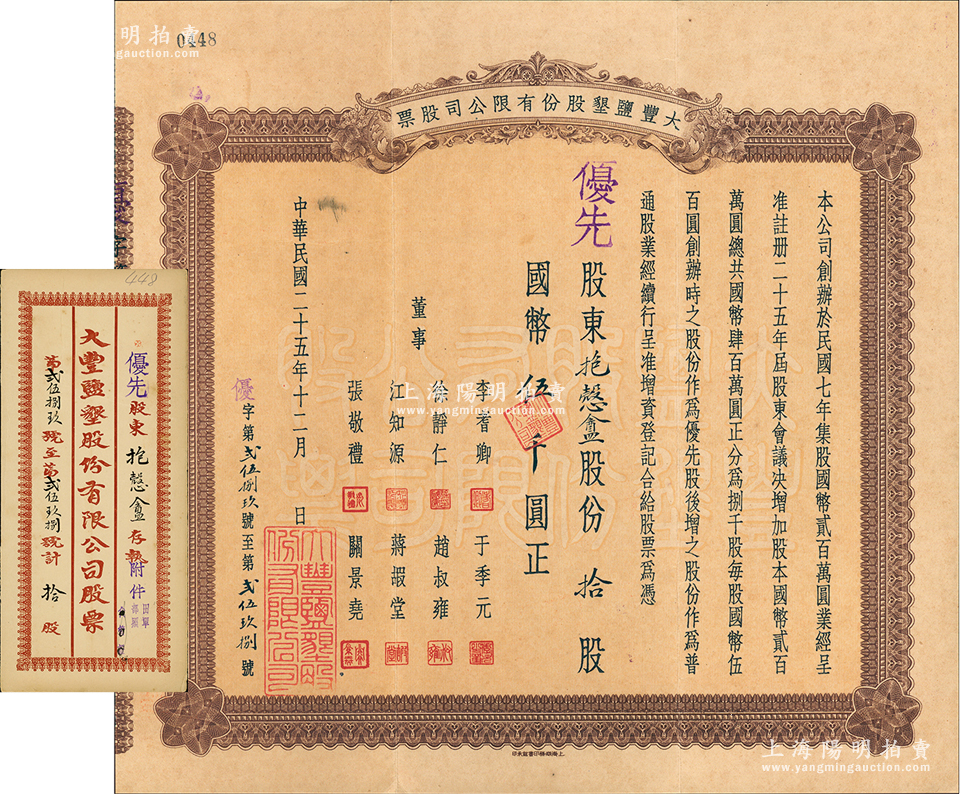 0448
大豐鹽墾股份有限公司股票
本公司創辦於民國七年集股國幣貳百萬圓業經呈
准註册二十五年屆股東會議決增加股本國幣貳百
萬圓總共國幣肆百萬圓正分為捌千股每股國幣伍
百圓創辦時之股份作為優先股後增之股份作為普
通股業經續行呈准增資登記合給股票為憑
優先
股東抱慤盦股份拾股
國幣伍千圓正
董事
李耆卿 于季元
徐靜仁 趙叔雍
江知源 蔣嘏堂
張敬禮 關景堯
中華民國二十五年十二月 日
優字第貳伍捌玖號至第貳伍玖捌號
大豐鹽墾股份有限公司
448
優先股東抱慤盦存執附件
大豐鹽墾股份有限公司股票
第貳伍捌玖號至第貳伍玖捌號計拾股
上海陽明拍賣
www.yangmingauction.com